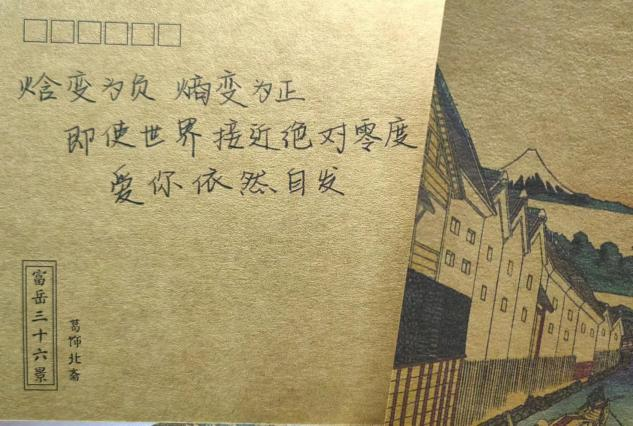 焓变为负 熵变为正
即使世界接近绝对零度
爱你依然自发
富岳三十六景
葛饰北斋